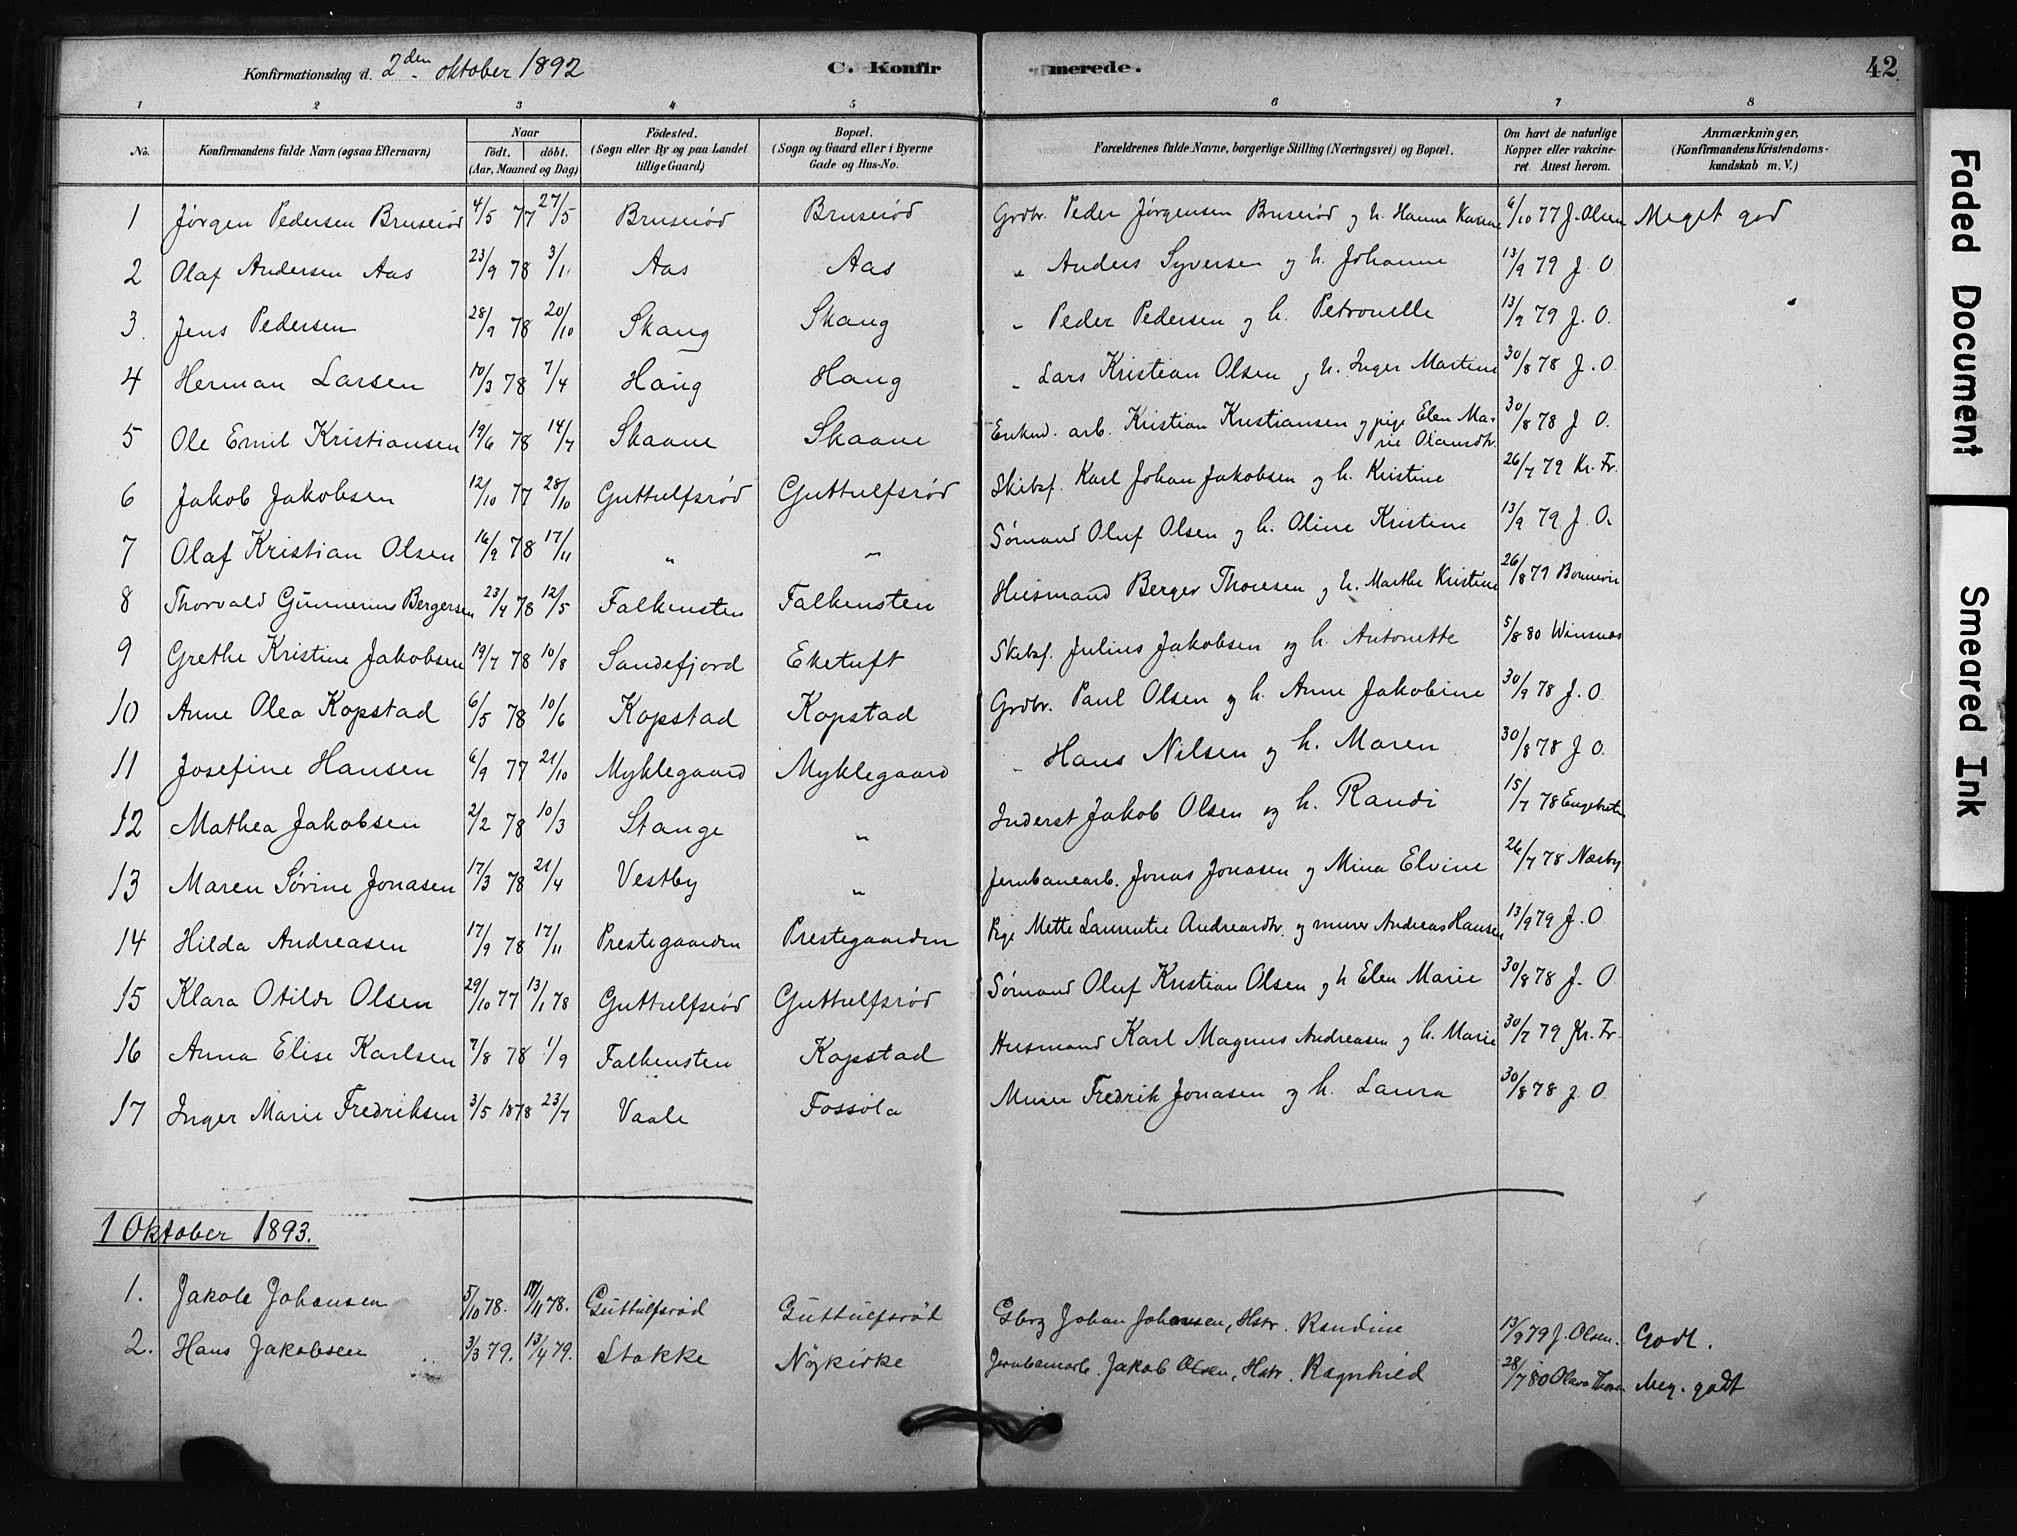 Konfirmationsdag d. 2den oktober 1892 C. Konfirmerede. 42
1 2 3 4 5 6 7 8
No. Konfirmandens fulde Navn (ogsaa Efternavn) Naar födt. döbt. (Aar, Maaned og Dag) Födested. (Sogn eller By og paa Landet tillige Gaard) Bopæl. (Sogn og Gaard eller i Byerne Gade og Hus-No. Forældrenes fulde Navne, borgerlige Stilling (Næringsvei) og Bopæl. Om havt de naturlige Kopper eller vakcineret Attest herom. Anmærkninger. (Konfirmandens Kristendomskundskab m. V.)
1 Jørgen Pedersen Bruserød 4/5 77 27/5 Bruserød Bruserød Grdbr. Peder Jørgensen Bruserød og h. Hanna Karine 6/10 77 J. Olsen Meget god
2 Olaf Andersen Aas 23/9 78 3/11 Aas Aas " Anders Syversen og h. Johanne 13/9 79 J. O
3. Jens Pedersen 28/9 78 20/10 Skaug Skaug " Peder Pedersen og h. Petronelle 13/9 79 J. O.
4 Herman Larsen 10/3 78 7/4 Haug Haug " Lars Kristian Olsen og h. Inger Martine 30/8 78 J. O.
5 Ole Emil Kristiansen 19/6 78 14/7 Skaane Skaane Enkmd. arb. Kristian Kristiansen og pige Elen Marie Olausdtr. 30/8 78 J O.
6 Jakob Jakobsen 12/10 77 28/10 Guttulfsrød Guttulfsrød Skibsf. Karl Johan Jakobsen og h. Kristine 26/7 79 Kr. Fr.
7 Olaf Kristian Olsen 16/9 78 17/11 " " Sømand Oluf Olsen og h. Oline Kristine 13/9 79 J. O.
8 Thorvald Gunnerius Bergersen 23/4 78 12/5 Falkensten Falkensten Husmand Berger Thoresen og h. Marthe Kristine 26/8 79 Bonnevie
9 Grethe Kristine Jakobsen 19/7 78 10/8 Sandefjord Eketuft Skibsf. Julius Jakobsen og h. Antonette 5/8 80 Winsnæs
10 Anne Olea Kopstad 6/5 78 10/6 Kopstad Kopstad Grdbr. Paul Olsen og h. Anne Jakobine 30/9 78 J. O.
11 Josefine Hansen 6/9 77 21/10 Myklegaard Myklegaard " Hans Nilsen og h. Maren 30/8 78 J O.
12 Mathea Jakobsen 2/2 78 10/3 Stange " Inderst Jakob Olsen og h. Randi 15/7 78
13 Maren Sørine Jonasen 17/3 78 21/4 Vestby " Jernbanearb. Jonas Jonasen og Mina Elvine 26/7 78 Næsby
14 Hilda Andreasen 17/9 78 17/11 Prestegaarden Prestegaarden Pige Mette Laurentie Andreasdtr. og murer Andreas Hansen 13/9 79 J. O
15 Klara Otilde Olsen 29/10 77 13/1 78 Guttulfsrød Guttulfsrød Sømand Oluf Kristian Olsen og h Elen Marie 30/8 78 J. O
16 Anna Elise Karlsen 7/8 78 1/9 Falkensten Kopstad Husmand Karl Magnus Andreasen og h. Marie 30/7 79 Kr. Fr.
17 Inger Marie Fredriksen 3/5 1878 23/7 Vaale Fossola Murer Fredrik Jonasen og h. Laura 30/8 78 J. O
1 Oktober 1893.
1. Jakob Johansen 5/10 78. 17/11 78. Guttulfsrød Guttulfsrød Gbrg Johan Johansen, Hstr. Randine 13/9 79 J. Olsen. Godt.
2. Hans Jakobsen 3/3 79. 13/4 79. Stokke Nÿkirke Jernbanearb. Jakob Olsen, Hstr. Ragnhild 28/7 80 Meg. godt
Faded Document
Smeared Ink